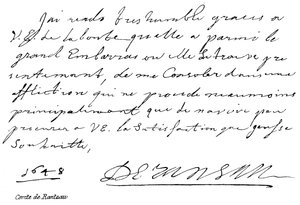 J'ai rends tres humble graces a
V.E. de la bonte qu'elle a parmi le
grand Embarras ou elle se trouve pre
sentement, de me Consoler dans une
affliction qui ne procede neaumoins
principalement que de n'avoir peu
procurer a VE. la Satisfaction que
Souhaitte,
1648
Comte de Rantzau